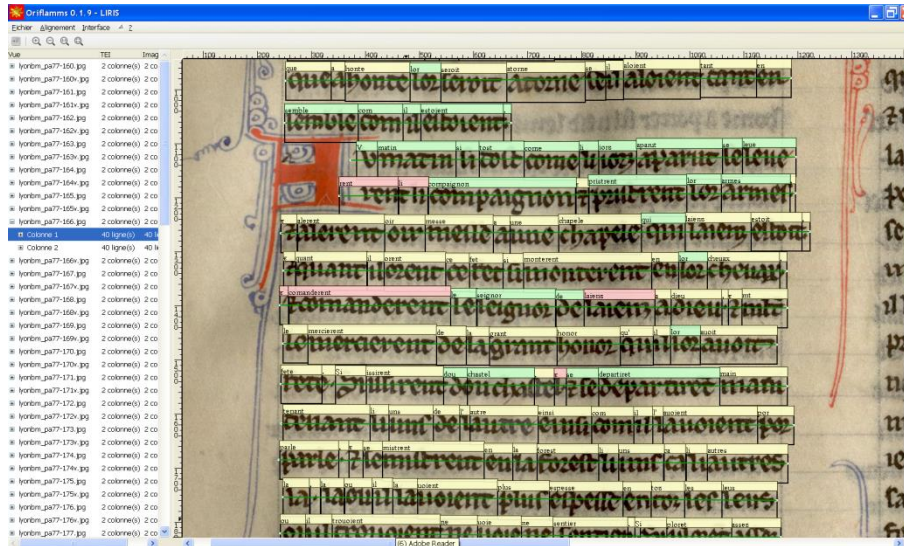 Oriflamms 0.1.9 - LIRIS
Fichier Alignement Interface ?
Vue TEI Imag
lyonbm_pa77-160.jpg 2 colonne(s) 2 co
lyonbm_pa77-160v.jpg 2 colonne(s) 2 co
lyonbm_pa77-161.jpg 2 colonne(s) 2 co
lyonbm_pa77-161v.jpg 2 colonne(s) 2 co
lyonbm_pa77-162.jpg 2 colonne(s) 2 co
lyonbm_pa77-162v.jpg 2 colonne(s) 2 co
lyonbm_pa77-163.jpg 2 colonne(s) 2 co
lyonbm_pa77-163v.jpg 2 colonne(s) 2 co
lyonbm_pa77-164.jpg 2 colonne(s) 2 co
lyonbm_pa77-164v.jpg 2 colonne(s) 2 co
lyonbm_pa77-165.jpg 2 colonne(s) 2 co
lyonbm_pa77-165v.jpg 2 colonne(s) 2 co
lyonbm_pa77-166.jpg 2 colonne(s) 2 co
Colonne 1 40 ligne(s) 40 li
Colonne 2 40 ligne(s) 40 li
lyonbm_pa77-166v.jpg 2 colonne(s) 2 co
lyonbm_pa77-167.jpg 2 colonne(s) 2 co
lyonbm_pa77-167v.jpg 2 colonne(s) 2 co
lyonbm_pa77-168.jpg 2 colonne(s) 2 co
lyonbm_pa77-168v.jpg 2 colonne(s) 2 co
lyonbm_pa77-169.jpg 2 colonne(s) 2 co
lyonbm_pa77-169v.jpg 2 colonne(s) 2 co
lyonbm_pa77-170.jpg 2 colonne(s) 2 co
lyonbm_pa77-170v.jpg 2 colonne(s) 2 co
lyonbm_pa77-171.jpg 2 colonne(s) 2 co
lyonbm_pa77-171v.jpg 2 colonne(s) 2 co
lyonbm_pa77-172.jpg 2 colonne(s) 2 co
lyonbm_pa77-172v.jpg 2 colonne(s) 2 co
lyonbm_pa77-173.jpg 2 colonne(s) 2 co
lyonbm_pa77-173v.jpg 2 colonne(s) 2 co
lyonbm_pa77-174.jpg 2 colonne(s) 2 co
lyonbm_pa77-174v.jpg 2 colonne(s) 2 co
lyonbm_pa77-175.jpg 2 colonne(s) 2 co
lyonbm_pa77-175v.jpg 2 colonne(s) 2 co
lyonbm_pa77-176.jpg 2 colonne(s) 2 co
lyonbm_pa77-176v.jpg 2 colonne(s) 2 co
lyonbm_pa77-177.jpg 2 colonne(s) 2 co
que a honte lor seroit atorne se il aloient tant en
semble com il estoient
V matin si tost come li iors aparut se leve
rent li compaignon pristrent lor armes
alerent oir messe a une chapele qui laiens estoit
quant il orent ce fet si monterent en lor cheuax
comanderent le seignor de laiens a dieu mt
le mercierent de la grant honor qu' il lor auoit
fete Si issirent dou chastel se departirent main
tenant li uns de l' autre einsi com il l' auoient por
parle se mistrent en la forest li uns ca li autres
la la ou il la uoient plus espesse en toz les leus
ou il trouoient ne uoie ne sentier Si ploret asses
(6) Adobe Reader